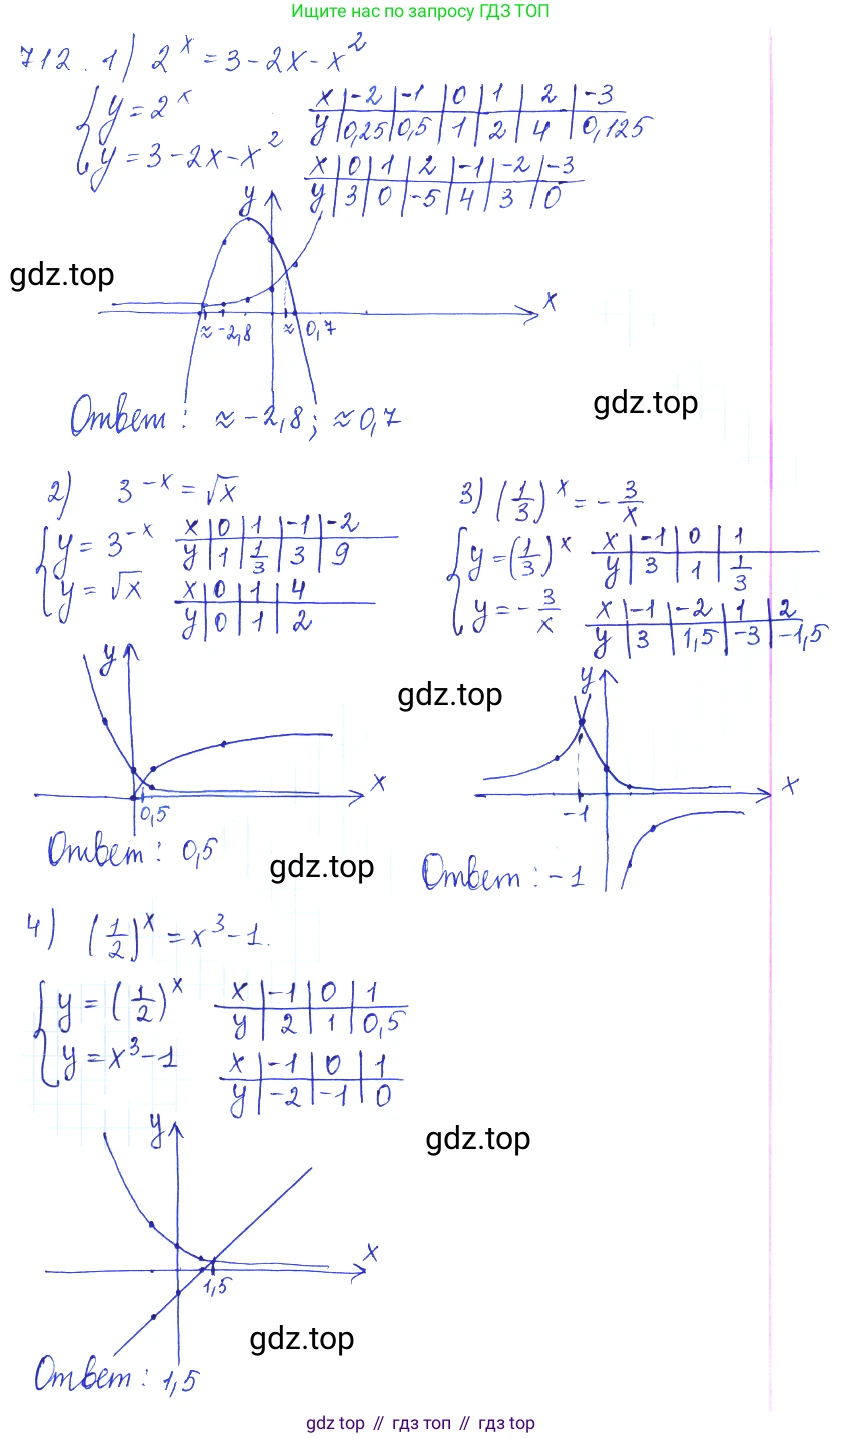 Ищите нас по запросу ГДЗ ТОП
712. 1) 2^x = 3 - 2x - x^2
{ y = 2^x
x | -2 | -1 | 0 | 1 | 2 | -3
y | 0,25 | 0,5 | 1 | 2 | 4 | 0,125
y = 3 - 2x - x^2
x | 0 | 1 | 2 | -1 | -2 | -3
y | 3 | 0 | -5 | 4 | 3 | 0
y
gdz.top
x
≈ -2,8 ≈ 0,7
gdz.top
Ответ: ≈ -2,8; ≈ 0,7
2) 3^{-x} = √x
{ y = 3^{-x}
y = √x
x | 0 | 1 | -1 | -2
y | 1 | 1/3 | 3 | 9
x | 0 | 1 | 4
y | 0 | 1 | 2
y
x
0,5
Ответ: 0,5
3) (1/3)^x = -3/x
{ y = (1/3)^x
y = -3/x
x | -1 | 0 | 1
y | 3 | 1 | 1/3
x | -1 | -2 | 1 | 2
y | 3 | 1,5 | -3 | -1,5
gdz.top
y
x
-1
gdz.top
Ответ: -1
4) (1/2)^x = x^3 - 1.
{ y = (1/2)^x
y = x^3 - 1
x | -1 | 0 | 1
y | 2 | 1 | 0,5
x | -1 | 0 | 1
y | -2 | -1 | 0
y
gdz.top
x
1,5
gdz.top
Ответ: 1,5
gdz top // гдз топ // gdz top